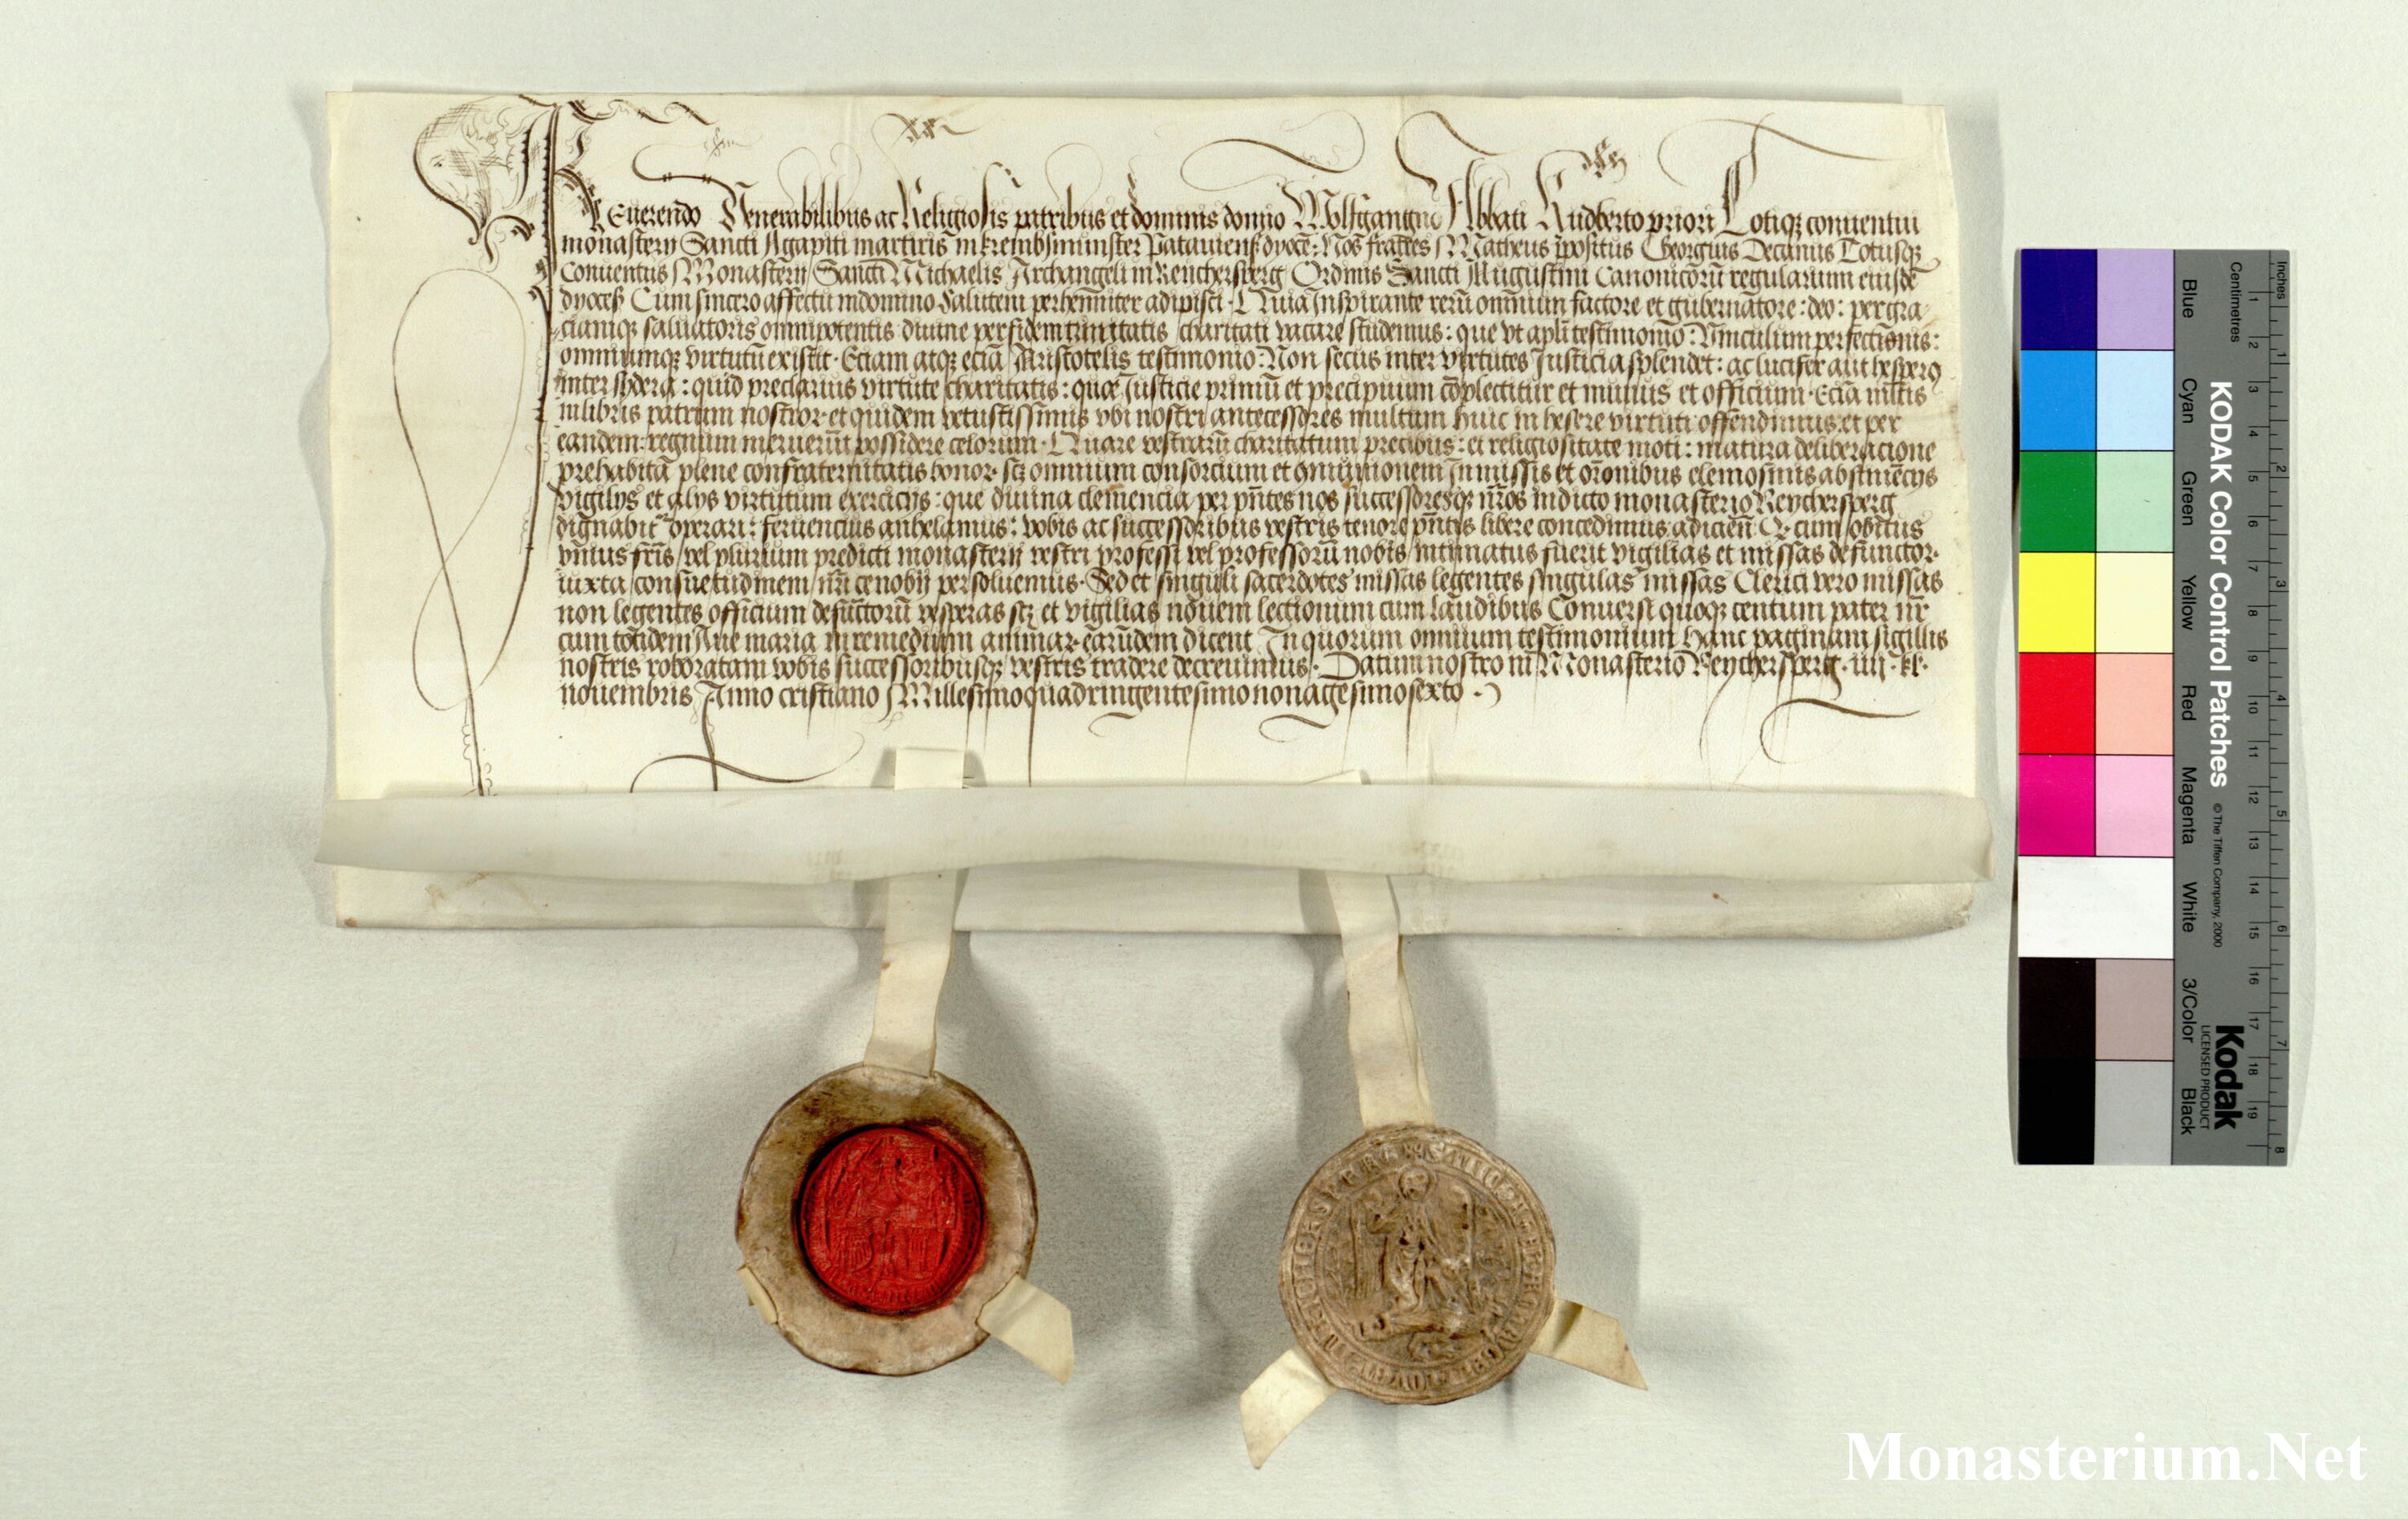 REuerendo Venerabilibus ac Religiosis patribus et dominis domno Wolfgango Abbati Rudberto priori Totiqꝫ conuentui
monasterij Sancti Agapiti martiris in krembsmunster Patauienß dyoce: Nos fratres Matheus p̄positus Georgius Decanus Totusqꝫ
Conuentus Monasterij Sancti Michaelis Archangeli in Reichersperg Ordinis Sancti Augustini Canonicorū regularium eiusdē
dyoceß Cum sincero affectu in domino salutem perhenniter adipisci. Quia Inspirante rerū omnium factore et gubernatore: deo: per gra-
ciamqꝫ saluatoris omnipotentis diuine per fidem trinitatis charitati vacare studemus: que vt apl̄i testimonio: Vinculum perfectionis:
omniumqꝫ virtutū existit. Eciam atqꝫ eciā Aristotelis testimonio: Non secus inter virtutes Iusticia splendet: ac lucifer aut hesperꝰ
inter sydera: quid preclarius virtute charitatis: que Iusticie primū et precipuum cōplectitur et munus et officium. Eciā ml̄tis
in libris patrum nostror. et quidem vetustissimis vbi nostri antecessores multum huic inhesere virtuti offendimus: et per
eandem: regnum meruerūt possidere celorum. Quare vestrarū charitatum precibus: et religiositate moti: matura deliberacione
prehabita plene confraternitatis bonor. scꝫ omnium consorcium et cōmunionem In missis et oronibus elemosinis abstinēcijs
vigilijs et alijs virtutum exercicijs: que diuina clemencia per pn̄tes nos successoresqꝫ nr̄os in dicto monasterio Reychersperg
dignabit᷑ operari: feruencius anhelamus: vobis ac successoribus vestris tenore pn̄tis libere concedimus adicien̄. Qꝫ cum obitus
vnius fr̄is vel plurium predicti monasterij vestri professi vel professorū nobis intimatus fuerit vigilias et missas defunctor.
iuxta consuetudinem nr̄i cenobij persoluemus. Sed et singuli sacerdotes missas legentes singulas missas Clerici vero missas
non legentes officium defunctorū vesperas scꝫ et vigilias nouem lectionum cum laudibus Conuersi quoqꝫ centum pater nr̄
cum totidem Aue maria in remedium animar. earūdem dicent In quorum omnium testimonium hanc paginam sigillis
nostris roboratam vobis successoribusqꝫ vestris tradere decreuimus. Datum nostro in Monasterio Reychersperg. iiij. kl.
nouembris Anno cristiano Millesimoquadringentesimononagesimosexto.
KODAK Color Control Patches © The Tiffen Company, 2000
Kodak
LICENSED PRODUCT
Inches 1 2 3 4 5 6 7 8
Centimetres 1 2 3 4 5 6 7 8 9 10 11 12 13 14 15 16 17 18 19
Blue Cyan Green Yellow Red Magenta White 3/Color Black
Monasterium.Net